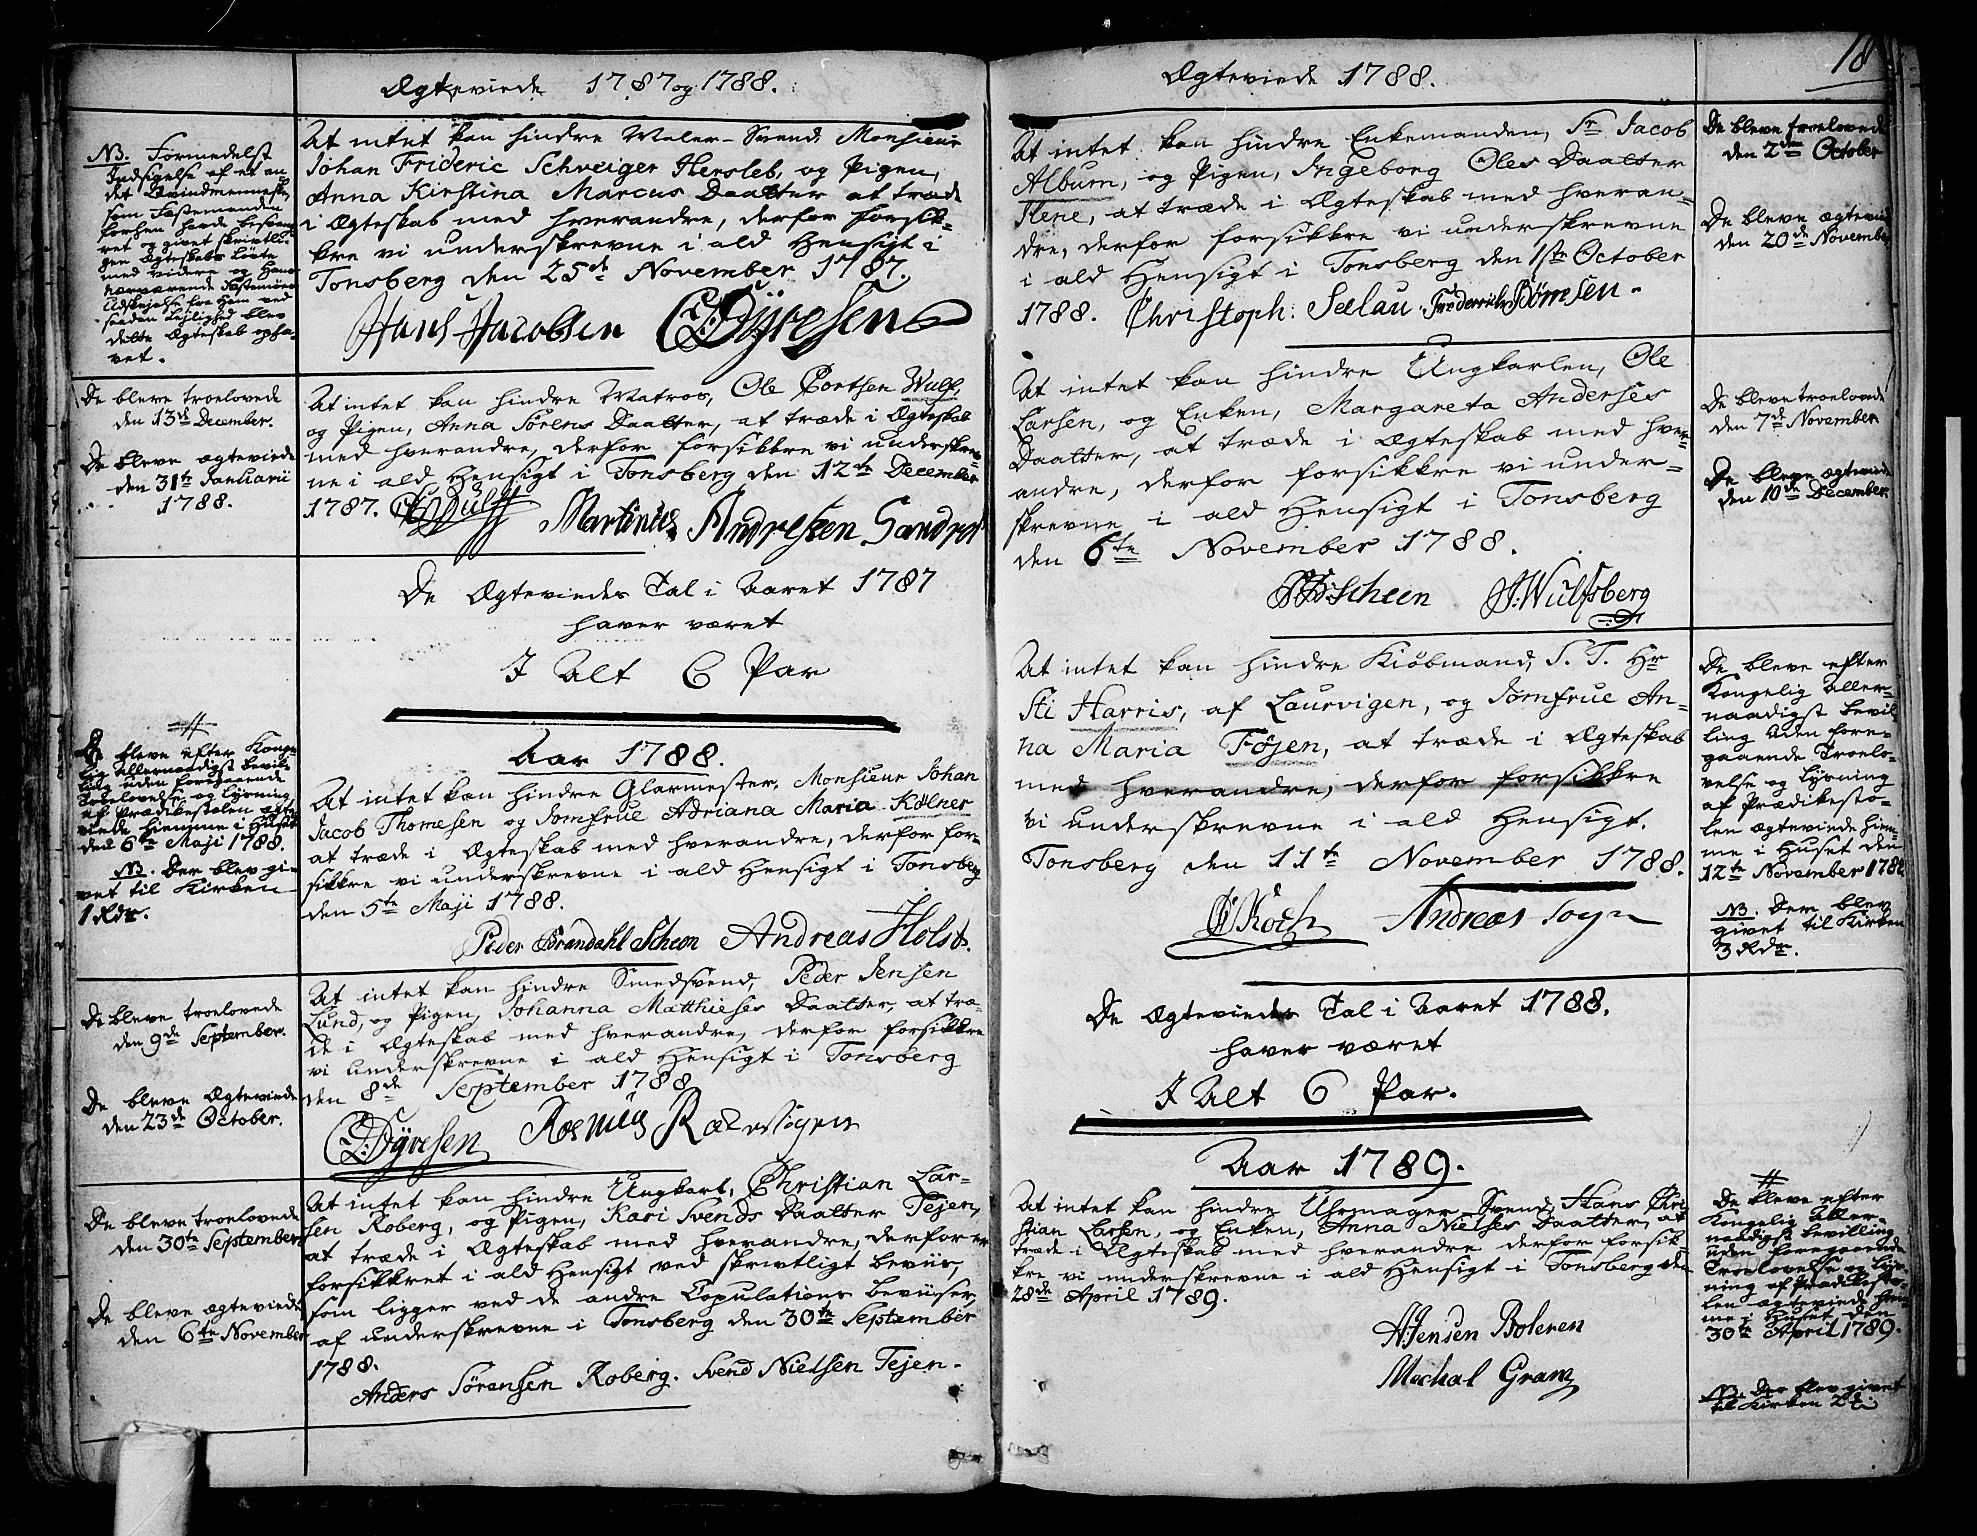 Ægteviede 1787 og 1788.
NB. Formedelst
Indsigelse af et an-
det Qvindmenneske,
som Fæstemanden
forhen havde besvan-
ret og givet skriftli-
gen Ægteskabs Løfte
med videre og Hans
nærværende Fæstemøes
Udskejelse fra Ham ved
saadan Lejlighed blev
dette Ægteskab ophæ-
vet.
At intet kan hindre Maler-Svend, Monsieur
Johan Frideric Schweiger Hersleb, og Pigen,
Anna Kirstina Marcus Daatter at træde
i Ægteskab med hverandre, derfor forsik-
kre vi underskrevne i ald Hensigt i
Tonsberg den 25de November 1787.
Hans Jacobsen CDÿresen
De bleve troelovede
den 13de December.
De bleve ægteviede
den 31te Januarii
1788.
At intet kan hindre Matros, Ole Portsen Wulf,
og Pigen, Anna Sørens Daatter, at træde i Ægteskab
med hverandre, derfor forsikkre vi underskrev-
ne i ald Hensigt i Tonsberg den 12te December
1787. Wulff Martinus Andresen Sandrot
De Ægteviedes Tal i Aaret 1787
haver været
I Alt 6 Par
Aar 1788.
De bleve efter Konge-
lig allernaadigst Bevil-
ling uden foregaaende
Troelovelse og Lysning
af Prædikestolen ægte-
viede hiemme i Huset
den 6te Maji 1788.
NB. Der blev gi-
vet til Kirken
1 Rdr.
At intet kan hindre Glarmester, Monsieur Johan
Jacob Thomesen og Jomfrue Adriana Maria Kølner
at træde i Ægteskab med hverandre, derfor for-
sikkre vi underskrevne i ald Hensigt i Tonsberg
den 5te Maji 1788.
Peder Brandahl Scheen Andreas Holst.
De bleve troelovede
den 9de September.
De bleve Ægteviede
den 23de October.
At intet kan hindre Smedsvend, Peder Jensen
Lund, og Pigen, Johanna Matthieses Daatter, at træ-
de i Ægteskab med hverandre, derfor forsikkre
vi underskrevne i ald Hensigt i Tonsberg
den 8de September 1788.
CDÿresen Rasmus
De bleve troelovede
den 30te September
De bleve ægteviede
den 6te November
At intet kan hindre Ungkarl, Christian Lar-
sen Roberg, og Pigen, Kari Svends Daatter Tejen,
at træde i Ægteskab med hverandre, derfor er
forsikkret i ald Hensigt ved skriftligt beviis,
som ligger ved de andre Copulations beviiser,
af underskrevne i Tonsberg den 30te September
1788.
Anders Sørensen Roberg. Svend Nielsen Tejen.
18
Ægteviede 1788.
At intet kan hindre Enkemanden, Sr. Jacob
Album, og Pigen, Ingeborg Oles Daatter
Ilene, at træde i Ægteskab med hveran-
dre, derfor forsikkre vi underskrevne
i ald Hensigt i Tonsberg den 1ste October
1788. Christoph. Seelau. Frederich Bømsen.
De bleve troelovede
den 2den October
De bleve ægteviede
den 20de November
At intet kan hindre Ungkarlen, Ole
Larsen, og Enken, Margareta Anderses
Daatter, at træde i Ægteskab med hver-
andre, derfor forsikkre vi under-
skrevne i ald Hensigt i Tonsberg
den 6te November 1788.
Scheen J. Wulfsberg
De bleve troelovede
den 7de November
De bleve ægteviede
den 10de December.
At intet kan hindre Kiøbmand, S. T. Hr
Sti Harris, af Laurvigen, og Jomfrue An-
na Maria Føjen, at træde i Ægteskab
med hverandre, derfor forsikkre
vi underskrevne i ald Hensigt.
Tonsberg den 11te November 1788.
Koch Andreas Sogn
De bleve efter
Kongelig aller-
naadigst bevil-
ling uden fore-
gaaende Troelo-
velse og Lysning
af Prædikesto-
len ægteviede hiem-
me i Huset den
12te November 1788
NB. Der blev
givet til Kirken
3 Rdr.
De Ægteviedes Tal i Aaret 1788.
haver været
I Alt 6 Par.
Aar 1789.
At intet kan hindre Uhrmager-Svend, Hans Chri-
stian Larsen, og Enken, Anna Nielses Daatter, at
træde i Ægteskab med hverandre derfor forsik-
kre vi underskrevne i ald Hensigt i Tonsberg den
28de April 1789.
AJensen Boleren
Mechal Gram
De bleve efter
Kongelig aller-
naadigst bevilling
uden foregaaende
Troelovelse og Lys-
ning af Prædikesto-
len ægteviede hiem-
me i Huset den
30te April 1789.
NB. Der blev givet
til Kirken